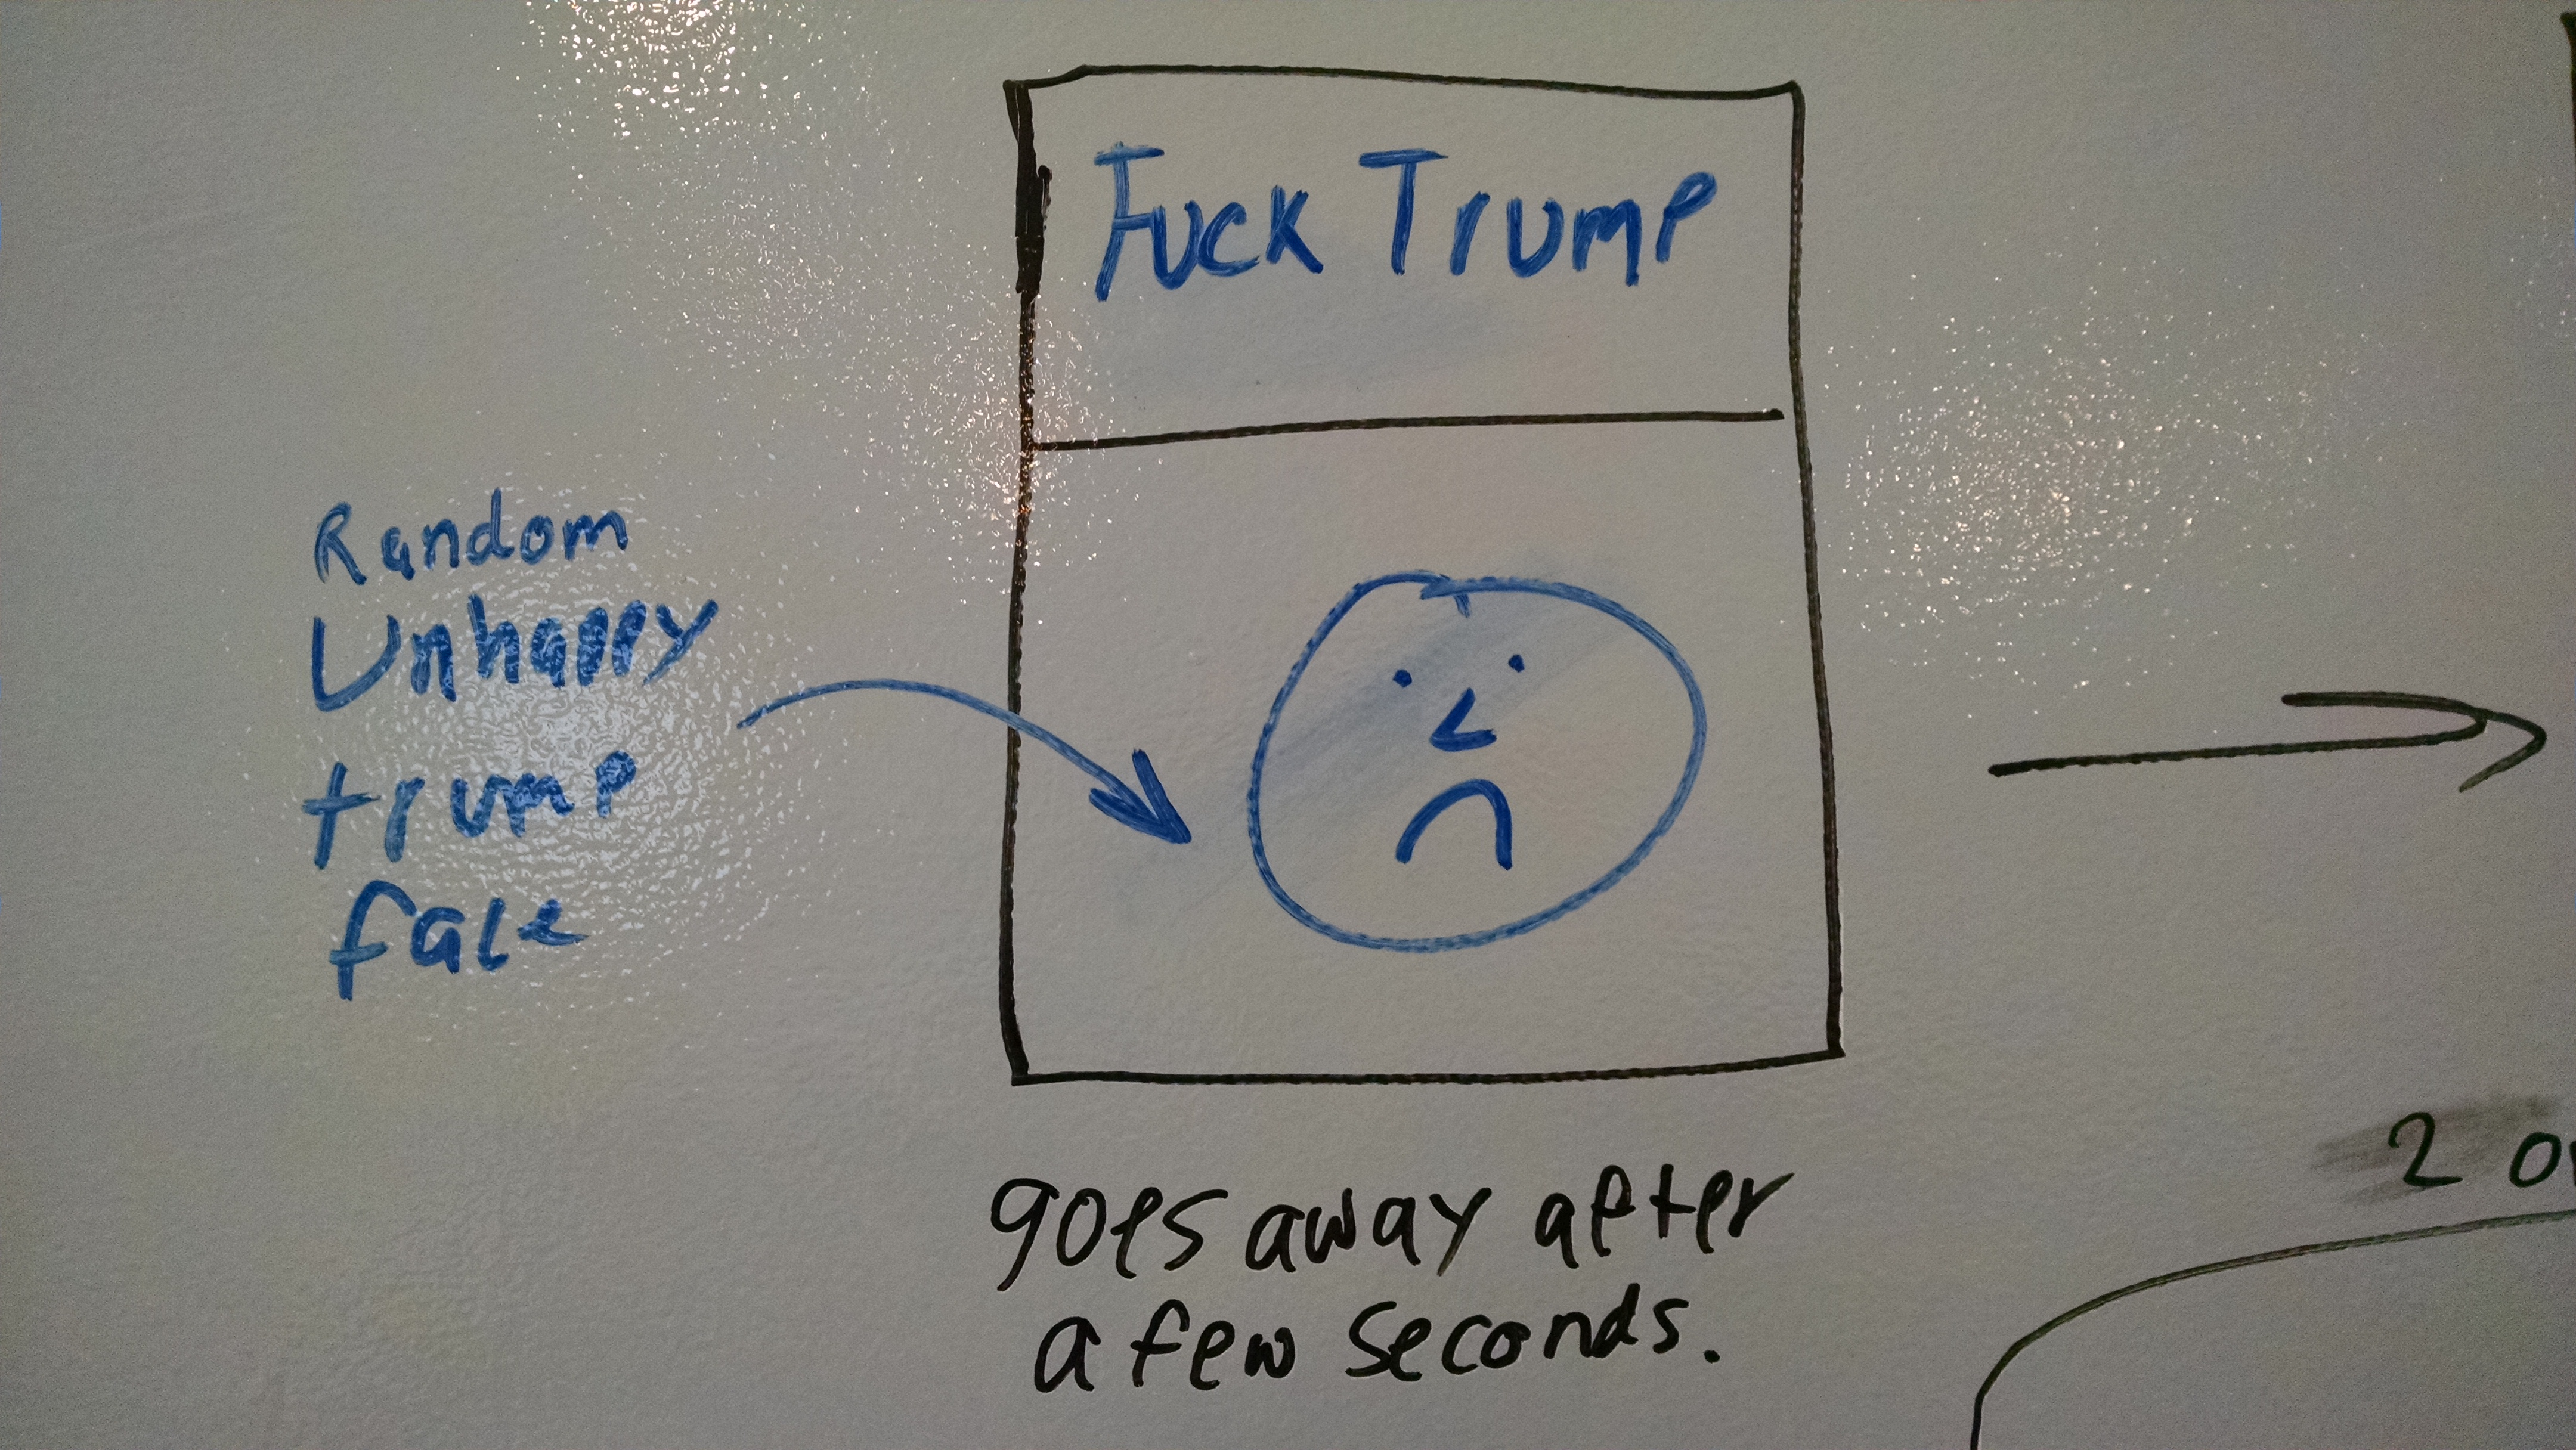 Fuck Trump
Random
Unhappy
trump
face
goes away after
a few seconds.
2